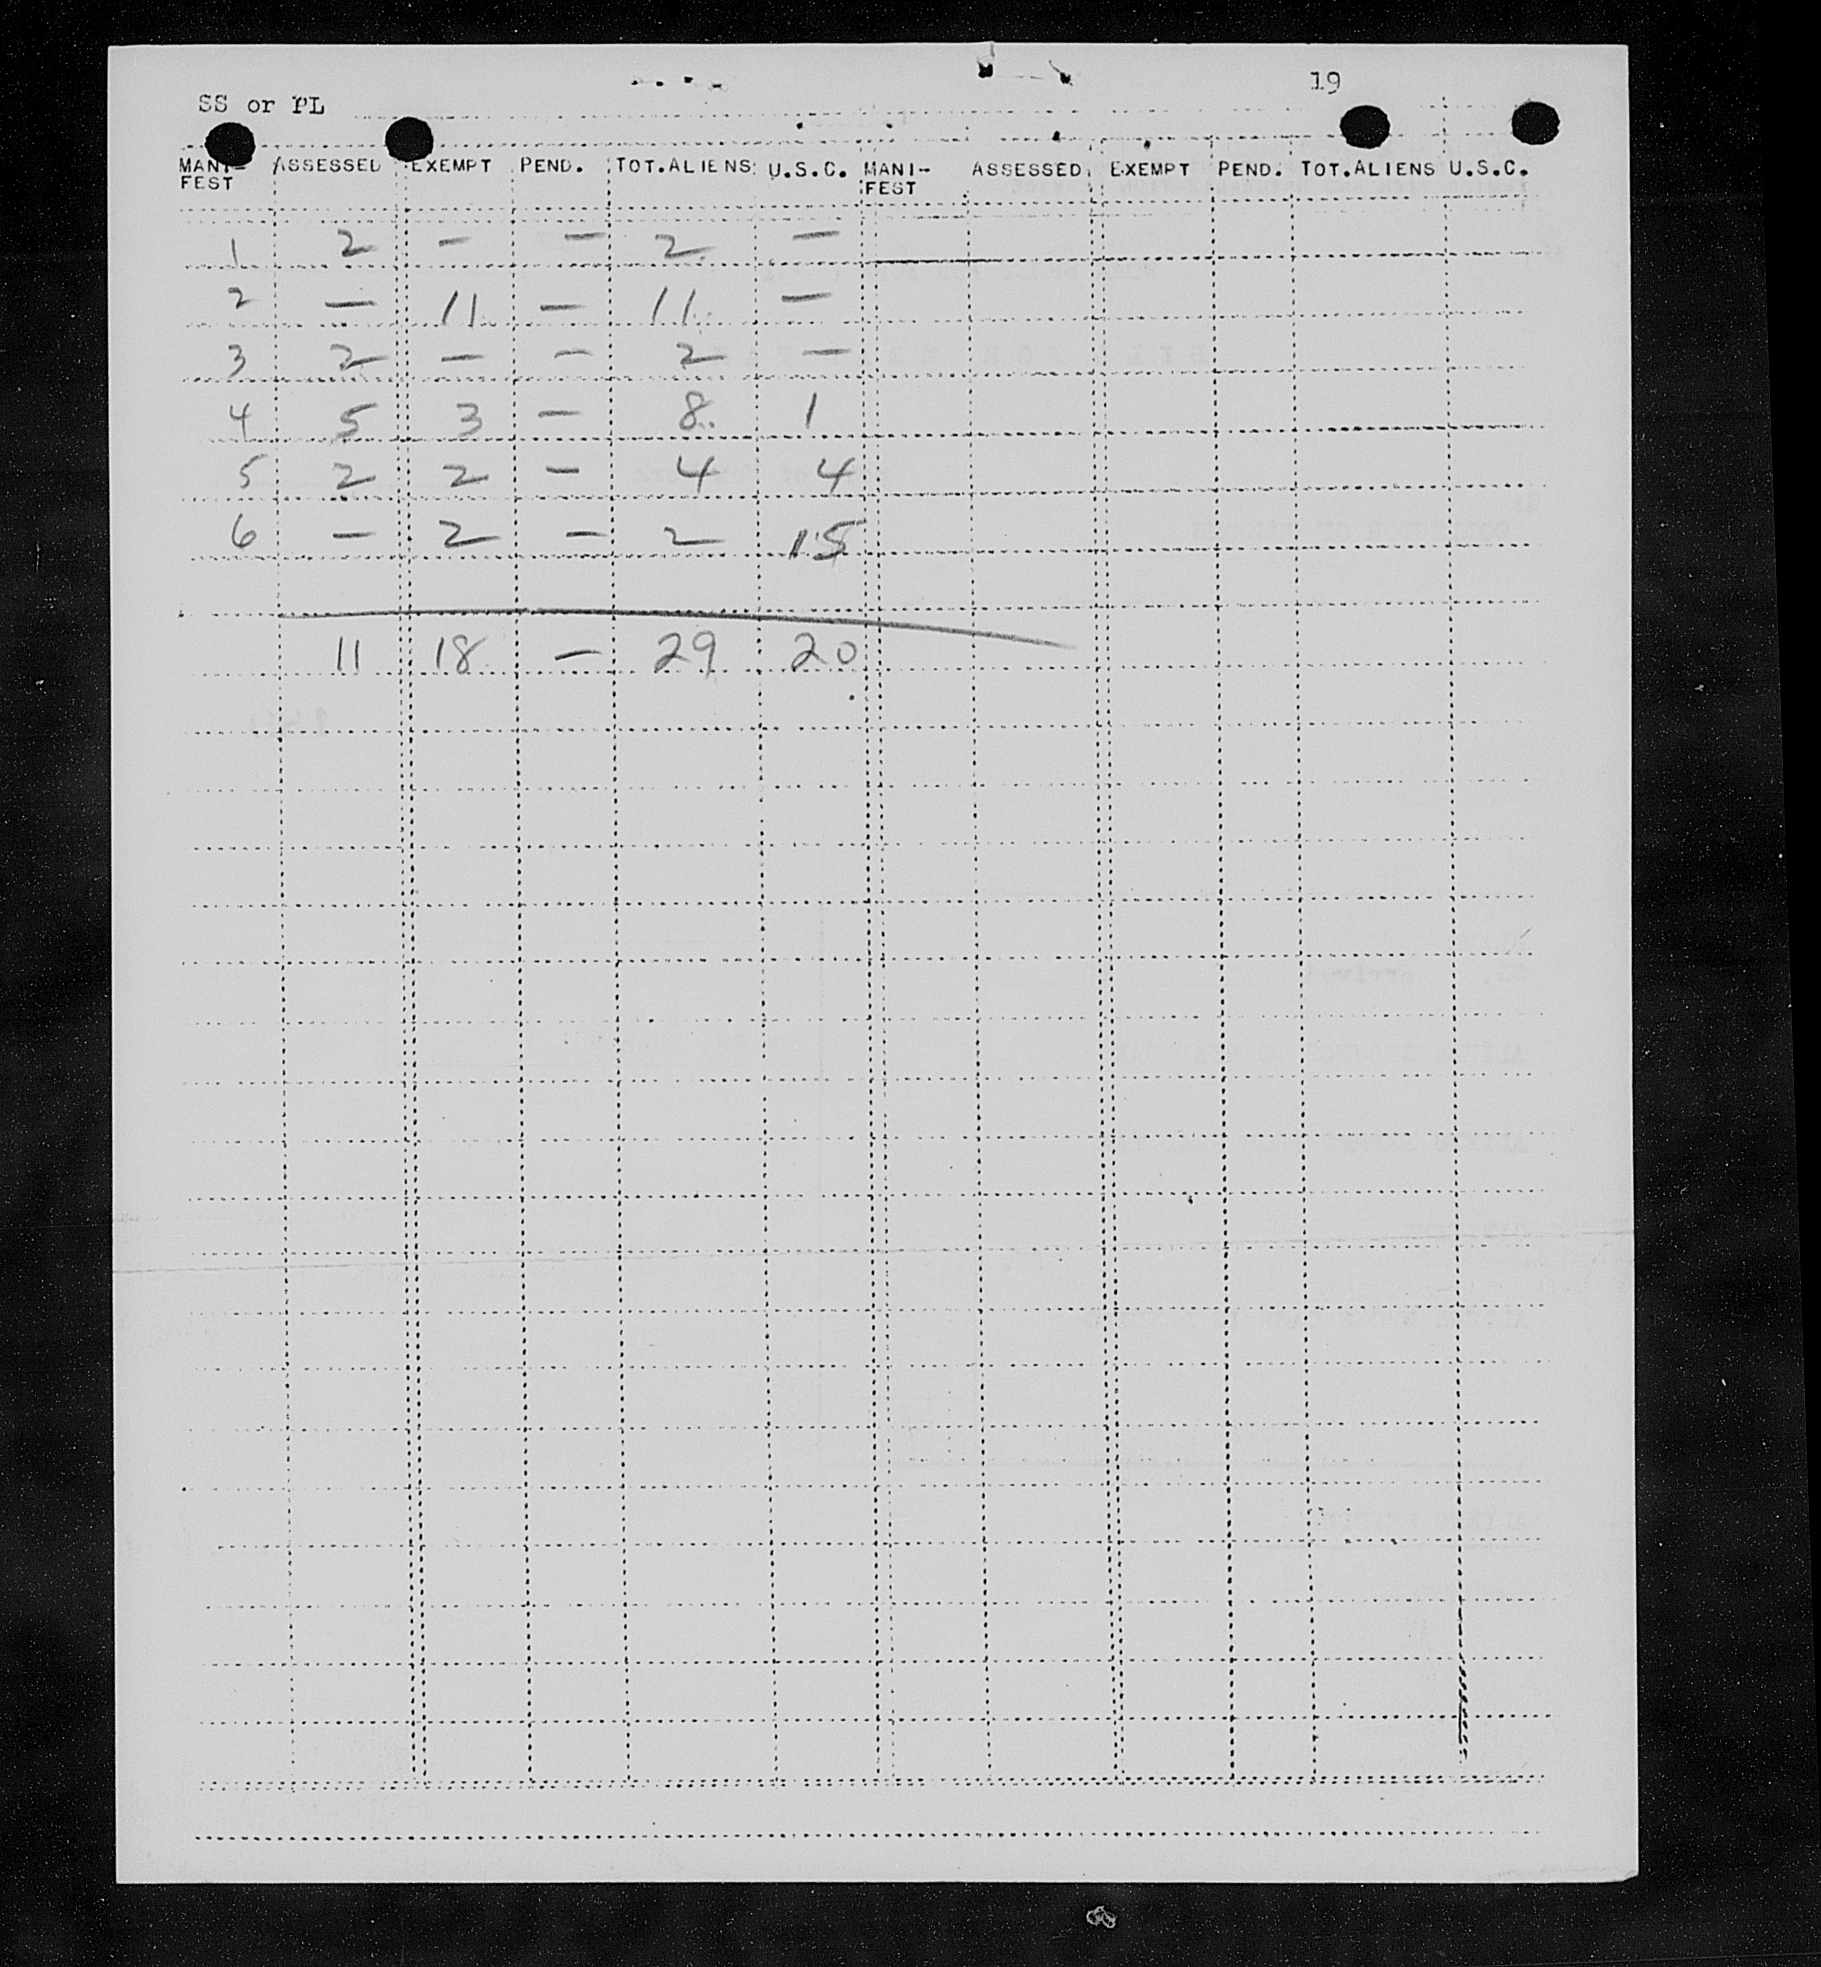 19
SS or PL
MANI-FEST ASSESSED EXEMPT PEND. TOT.ALIENS U.S.C. MANI-FEST ASSESSED EXEMPT PEND. TOT.ALIENS U.S.C.
1 2 – – 2 –
2 – 11 – 11 –
3 2 – – 2 –
4 5 3 – 8 1
5 2 2 – 4 4
6 – 2 – 2 15
11 18 – 29 20